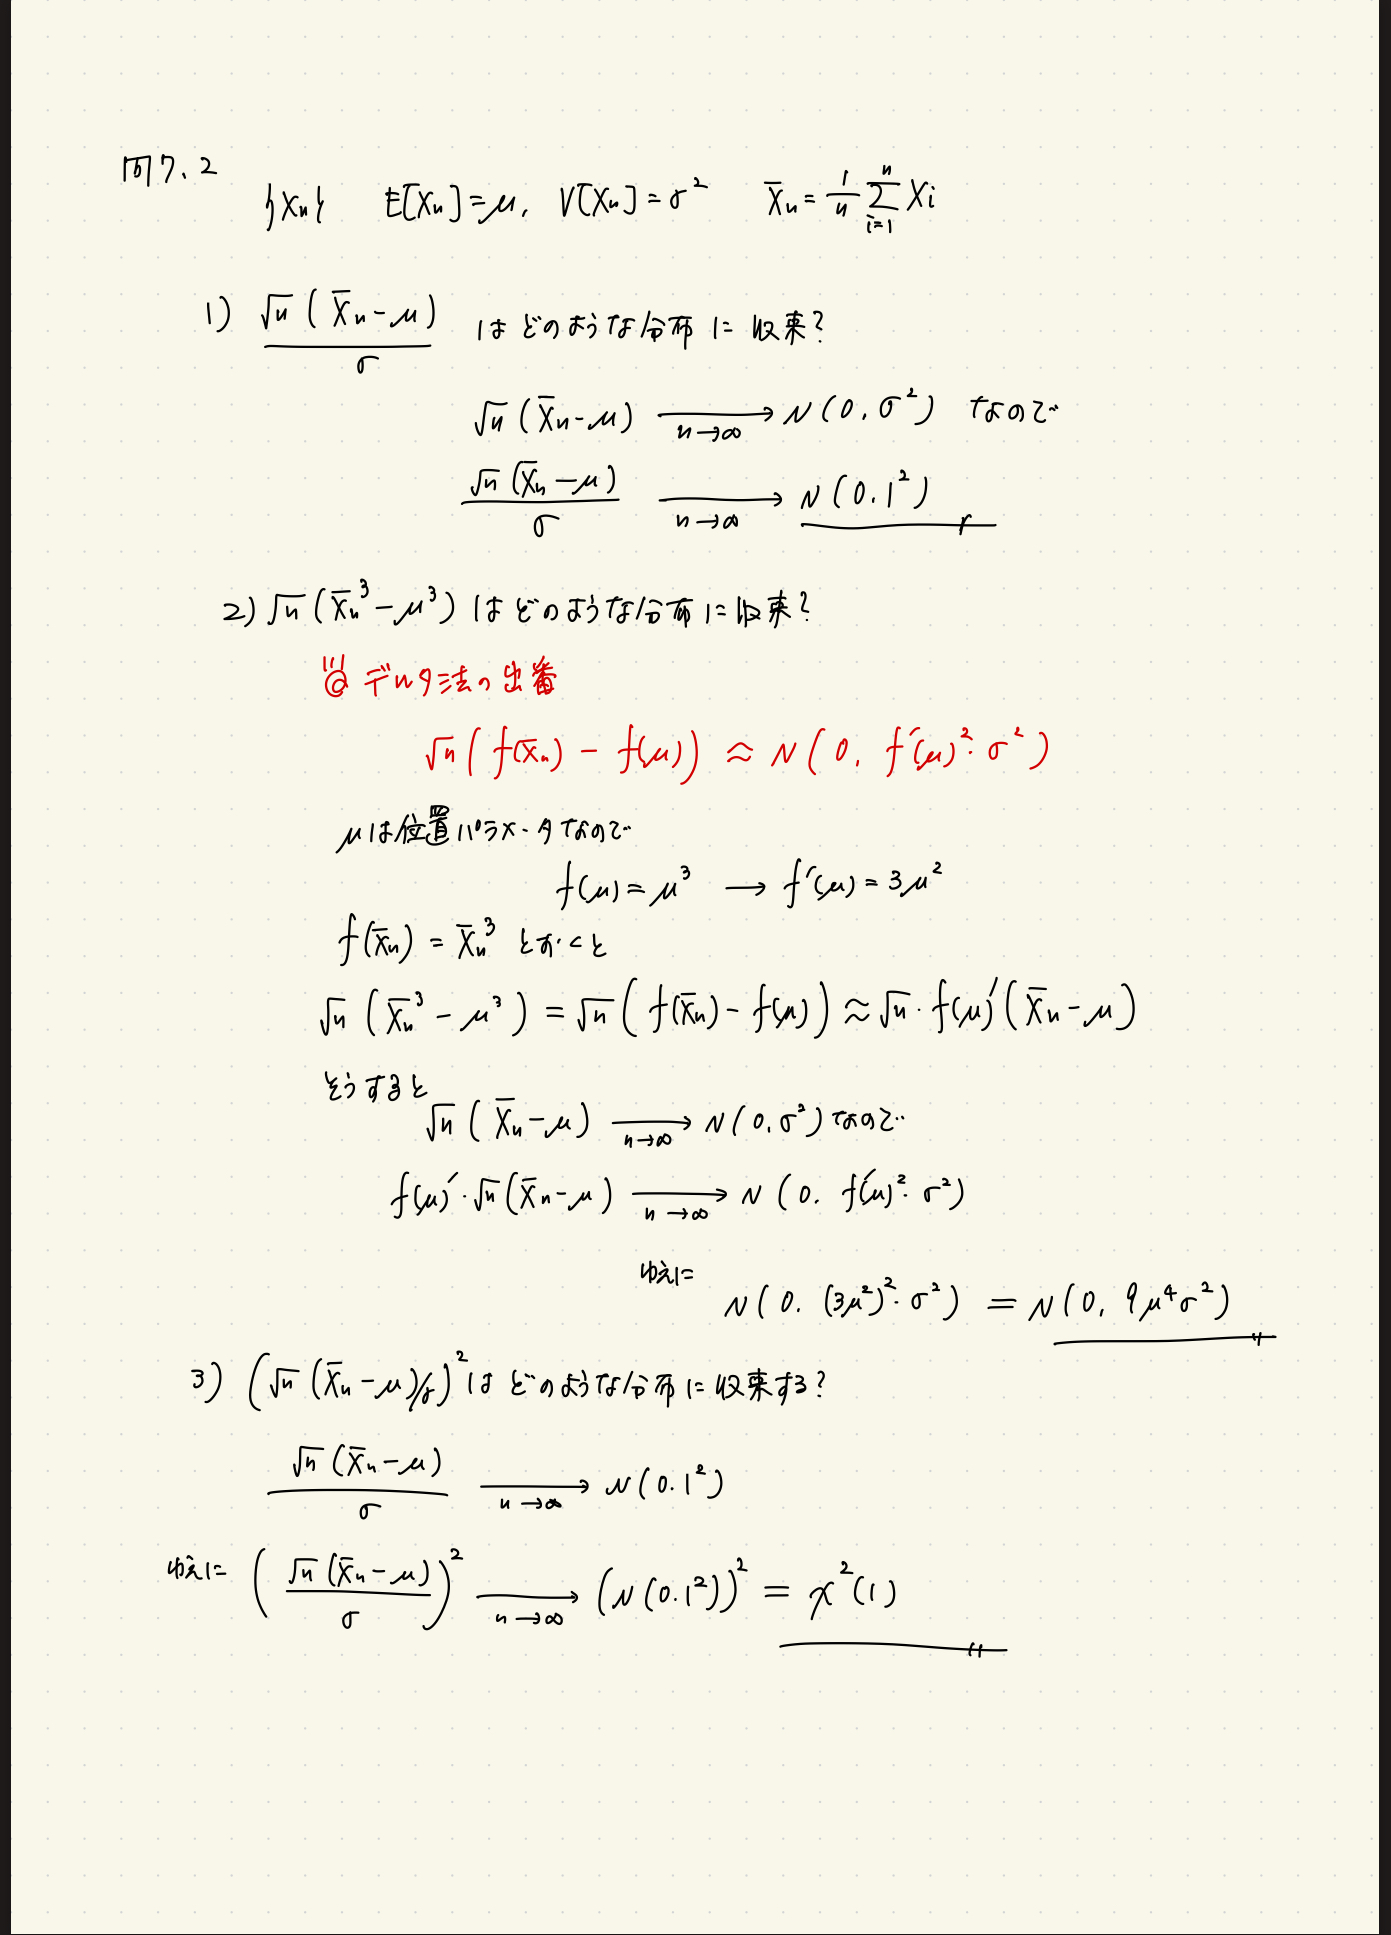 問7.2
{Xn} E[Xn]=μ, V[Xn]=σ² X̄n = 1/n Σ_{i=1}^{n} Xi
1) √n(X̄n-μ)/σ はどのような分布に収束?
√n(X̄n-μ) →_{n→∞} N(0, σ²) なので
√n(X̄n-μ)/σ →_{n→∞} N(0.1²)
2) √n(X̄n³-μ³) はどのような分布に収束?
デルタ法の出番
√n(f(X̄n) - f(μ)) ≈ N(0, f'(μ)²·σ²)
μは位置パラメータなので
f(μ)=μ³ → f'(μ)=3μ²
f(X̄n) = X̄n³ とおくと
√n(X̄n³-μ³) = √n(f(X̄n)-f(μ)) ≈ √n·f(μ)'(X̄n-μ)
そうすると
√n(X̄n-μ) →_{n→∞} N(0,σ²)なので
f(μ)'·√n(X̄n-μ) →_{n→∞} N(0. f'(μ)²·σ²)
ゆえに
N(0. (3μ²)²·σ²) = N(0, 9μ⁴σ²)
3) (√n(X̄n-μ)/σ)² はどのような分布に収束する?
√n(X̄n-μ)/σ →_{n→∞} N(0.1²)
ゆえに (√n(X̄n-μ)/σ)² →_{n→∞} (N(0.1²))² = χ²(1)